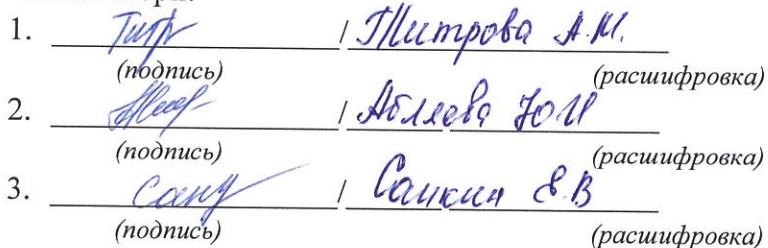 1. Титр / Титрова А.М.
(подпись) (расшифровка)
2. / Абляева Ю И
(подпись) (расшифровка)
3. Санк / Санкин Е.В
(подпись) (расшифровка)